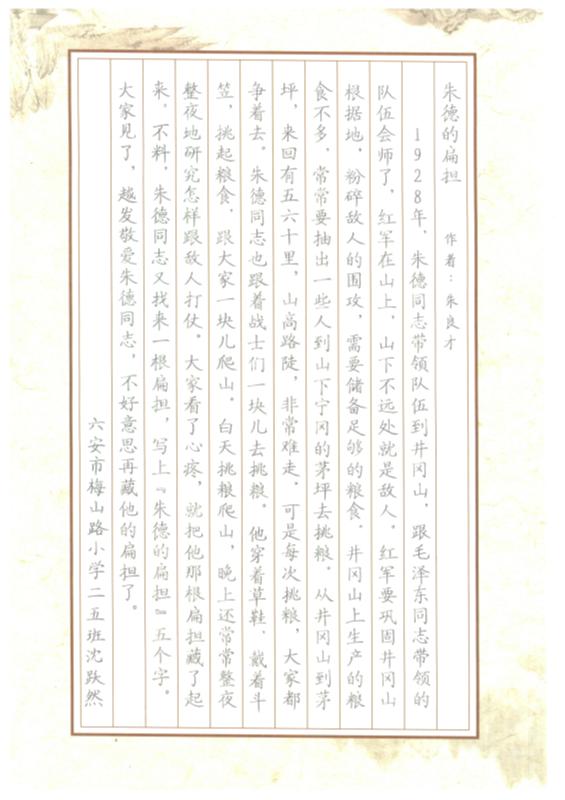 朱德的扁担　作者：朱良才
1928年，朱德同志带领队伍到井冈山，跟毛泽东同志带领的
队伍会师了，红军在山上，山下不远处就是敌人。红军要巩固井冈山
根据地，粉碎敌人的围攻，需要储备足够的粮食。井冈山上生产的粮
食不多，常常要抽出一些人到山下宁冈的茅坪去挑粮。从井冈山到茅
坪，来回有五六十里，山高路陡，非常难走。可是每次挑粮，大家都
争着去。朱德同志也跟着战士们一块儿去挑粮。他穿着草鞋、戴着斗
笠，挑起粮食，跟大家一块儿爬山。白天挑粮爬山，晚上还常常整夜
整夜地研究怎样跟敌人打仗。大家看了心疼，就把他那根扁担藏了起
来。不料，朱德同志又找来一根扁担，写上『朱德的扁担』五个字。
大家见了，越发敬爱朱德同志，不好意思再藏他的扁担了。
六安市梅山路小学二五班沈跃然